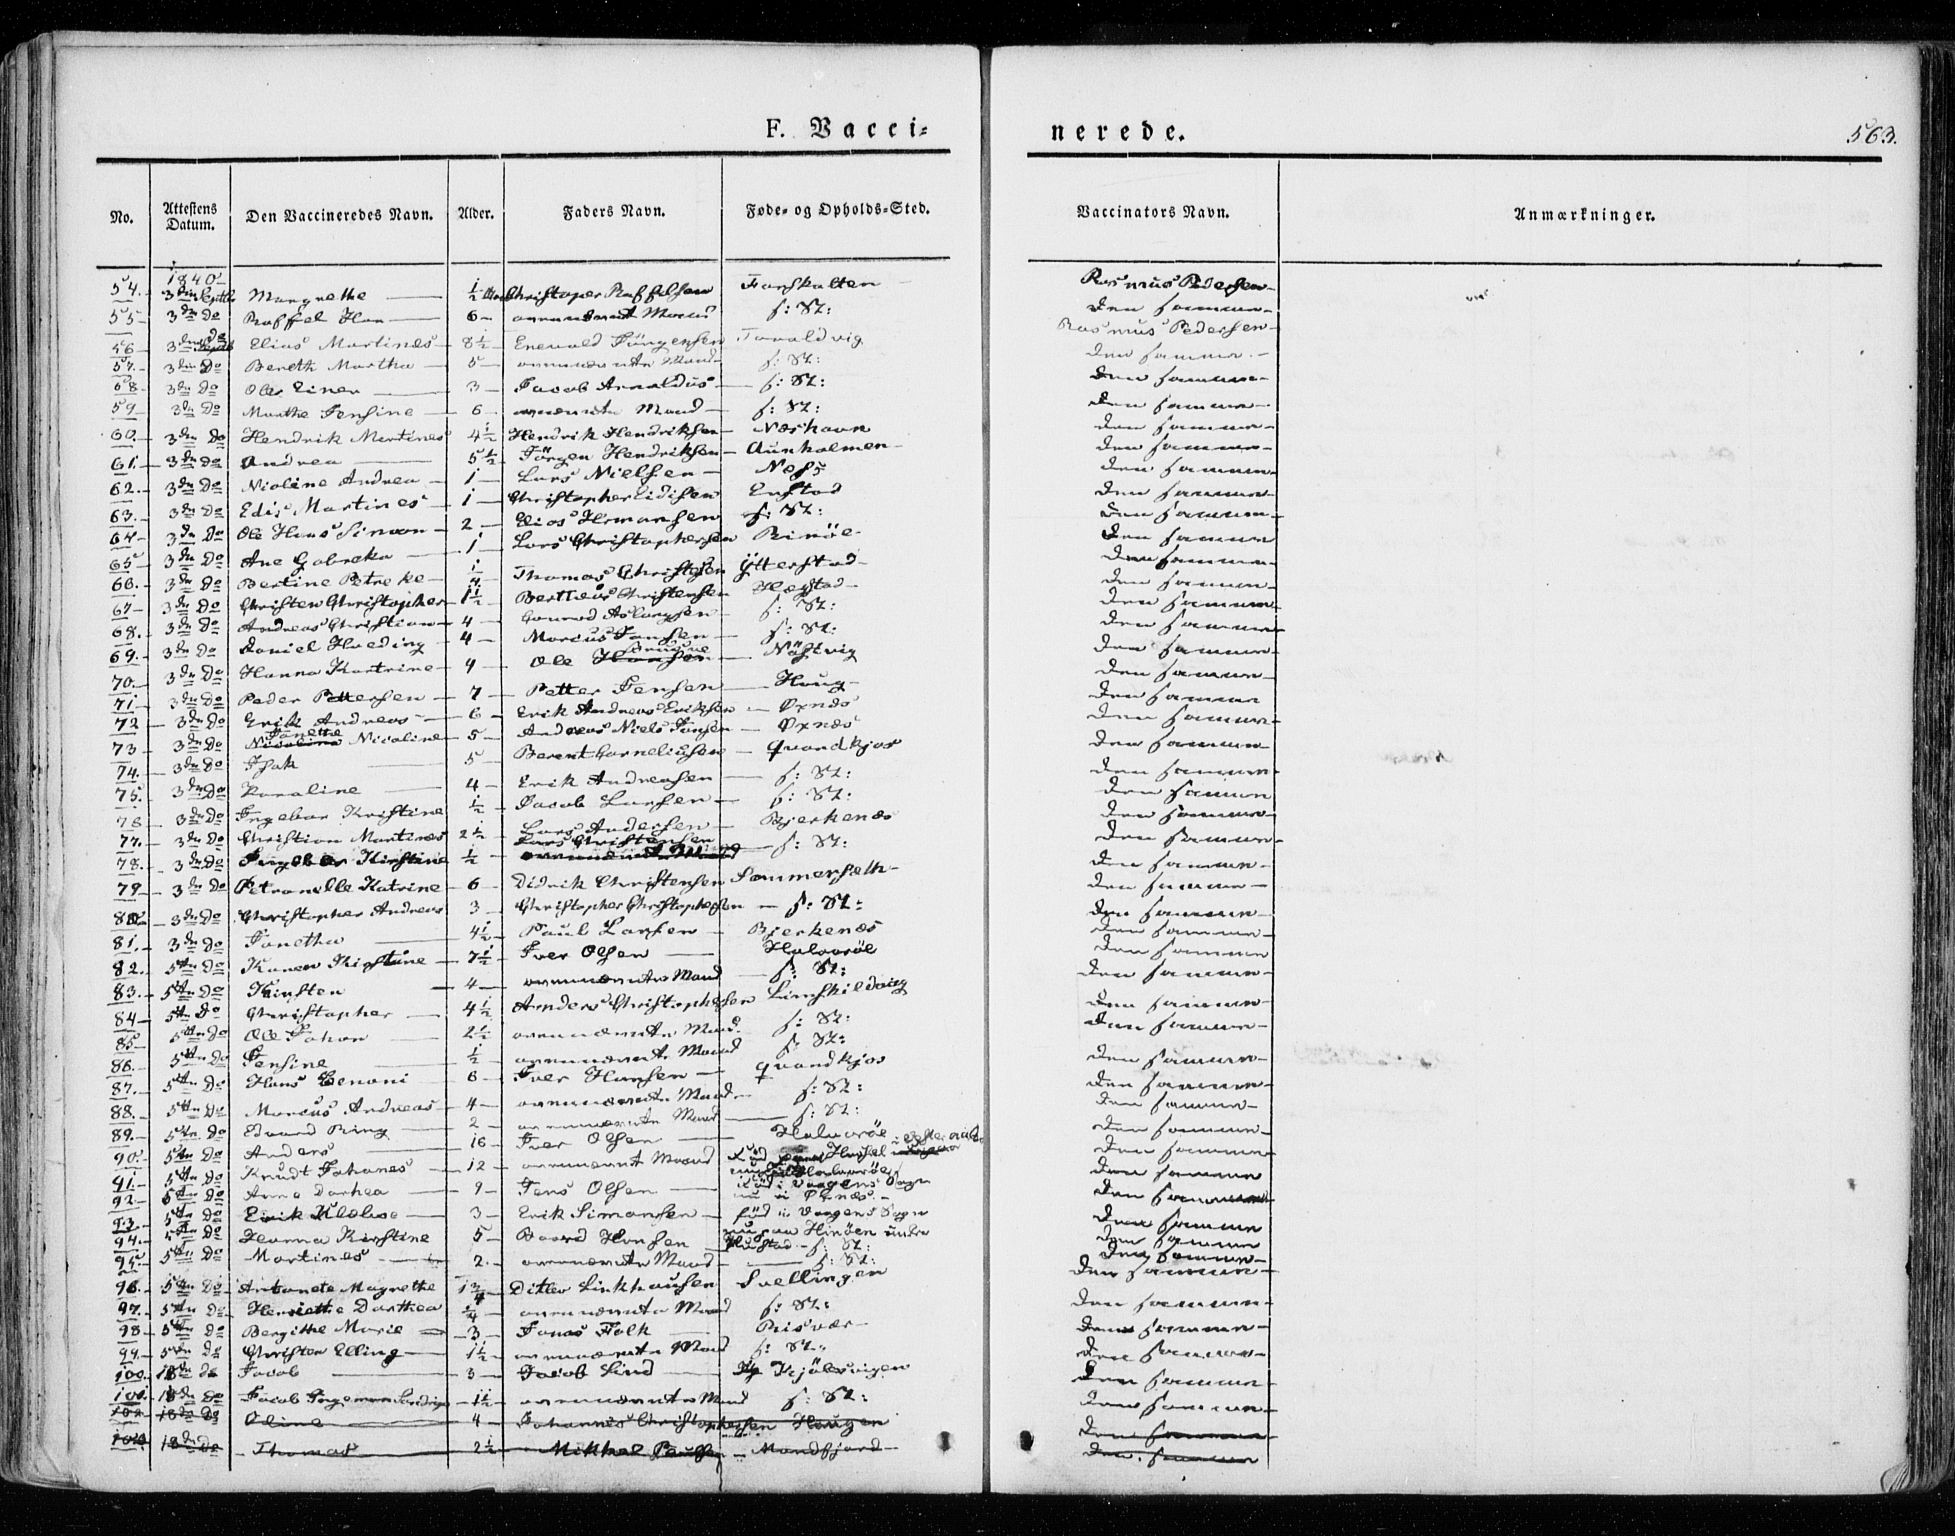 F. Vacci=
nerede.
563.
No.
Attestens Datum.
Den Vaccineredes Navn.
Alder.
Faders Navn.
Føde= og Opholds=Sted.
Vaccinators Navn.
Anmærkninger.
1840
54. 3die Septbr Margrethe ½ Christopher Raffelsen Forskalten Rasmus Pedersen
55 3die Do Raffel Han 6 ovennævnte Mand s: St: den samme
56 3die Elias Martines 8½ Enevold Jürgensen Tovaldvig Rasmus Pedersen
57. 3die Do Bereth Martha 5 ovennævnte Mand s: St: den samme
58. 3die Do Ole Einer 3 Jacob Arnoldus s: St: den samme
59 3die Do Marthe Jensine 6 ovennævnte Mand s: St: den samme
60. 3die Do Hendrik Martines 4½ Hendrik Hendriksen Næshavn den samme
61. 3die Do Andrea 5½ Jörgen Hendriksen Aunholmen den samme
62. 3die Do Nicoline Andrea 1 Lars Nielsen den samme
63. 3die Do Edis Martines 1 Christopher Eidisen Enstad den samme
64 3die Do Ole Hans Simon 2 Elias Hemansen s: St: den samme
65 3die Do Ane Gabreka 1 Lars Christophersen Rinöe den samme
66. 3die Do Bertine Petreke Thomas Christesen Ytterstad den samme
67 3die Do Christen Christopher 1½ Bertheus Christensen Hægstad den samme
68. 3die Do Andreas Christian 4 Conrad Aslaksen s: St: den samme
69. 3die Do Daniel Hveding 4 Marcus Jansen s: St: den samme
70. 3die Do Hanna Kartrine 4 Ole Hansen Nöstvig den samme
71. 3die Do Peder Pettersen 7 Petter Jensen Haug den samme
72 3die Do Erik Andreas 6 Erik Andreas Eriksen Oxnæs den samme
73 3die Do Nicolina Janette Nicoline 5 Andreas Niels Jansen Oxnæs den samme
74. 3die Do Isak 5 Berent Corneliusen Qvandkjos den samme
75. 3die Do Karaline 4 Erik Andreasen s: St: den samme
76 3die Do Ingebor Kristine ½ Jacob Larsen s: St: den samme
77. 3die Do Christian Martines 2½ Lars Andersen Bjerkenæs den samme
78. 3die Do Ingebor Kirstine ½ Lars Christensen s: St: den samme
79 3die Do Petronelle Katrine 6 Didrik Christensen Sommersæth den samme
80. 3die Do Christopher Andreas 3 Christopher Christophersen s: St: den samme
81. 3die Do Janetha 4½ Paul Larsen Bjerkenæs den samme
82. 5te Do Karen Kirstine 7½ Iver Olsen Halvaröe den samme
83. 5te Do Kirsten 4 ovennævnte Mand s: St: den samme
84 5te Do Christopher 4½ Anders Christophersen Limskildvig den samme
85 5te Do Ole Johan 2½ ovennævnte Mand s: St: den samme
86. 5te Do Jensine ½ ovennævnte Mand s: St: den samme
87. 5te Do Hans Benoni 6 Iver Hansen Qvandkjos den samme
88. 5te Do Marcus Andreas 4 ovennævnte Mand s: St: den samme
89. 5te Do Edvard Ring 2 ovennævnte Mand s: St: den samme
90. 5te Do Anders 16 Iver Olsen Halvaröe den samme
91. 5te Do Knudt Johanes 12 ovennævnte Mand den samme
92. 5te Do Anne Dorthea 9 Jens Olsen föd i Vaagens Sogn nu i Oxnæs den samme
93. 5te Do Erik Kleluse 3 Erik Simonsen föd i Vaagens Sogn den samme
94. 5te Do Hanna Kirstine 5 Baard Hansen Hustad s: St: den samme
95. 5te Do Martines 2. ovennævnte Mand s: St: den samme
96. 5te Do Antonete Magrethe 1¾ Ditlev Linkhausen Svellingen den samme
97. 5te Do Henriette Dorthea ¼ ovennævnte Mand s: St: den samme
98 5te Do Bergitte Marie 3 Jonas Falk Risvær den samme
99. 5te Do Christen Elling 1½ ovennævnte Mand s: St: den samme
100. 18de Do Jacob 3 Jacob Lind Kjölesvigen den samme
101. 18de Do Jacob Ingeman 1½ ovennævnte Mand s: St: den samme
102 18de Do Oline 4 Johannes Christophersen Haugen den samme
18de Do Thomas 2½ Mikkel Paulsen Mandfjord den samme